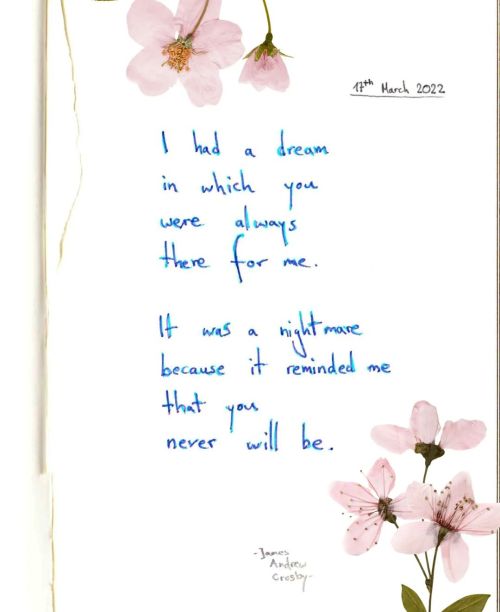 17th March 2022
I had a dream
in which you
were always
there for me.
It was a nightmare
because it reminded me
that you
never will be.
-James
Andrew
Crosby-